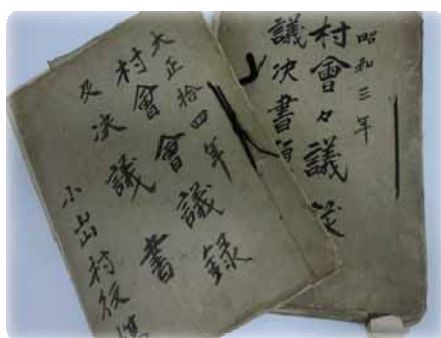 大正拾四年
村會會議録
及决議書
小出村役塲
昭和三年
村會々議
議决書